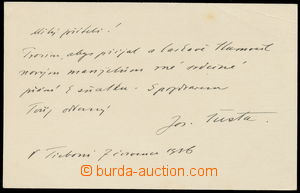 Milý příteli!
Prosím, abys přijal a laskavě tlumočil
novým manželům mé srdečné
přání k sňatku. S pozdravem
Tvůj oddaný
Jos. Šusta.
V Třeboni 7 července 1926
burda-auction.com